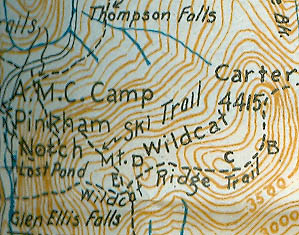 Thompson Falls
ails
Bk
Carter
4415
A.M.C. Camp
Pinkham
Notch
Ski Trail
Wildcat
Mt. D
C
B
Lost Pond
E
Wildcat Ridge Trail
Glen Ellis Falls
3500
3000